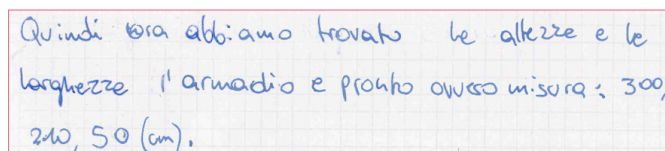 Quindi ora abbiamo trovato le altezze e le
larghezze l'armadio e pronto ovvero misura: 300,
210, 50 (cm).